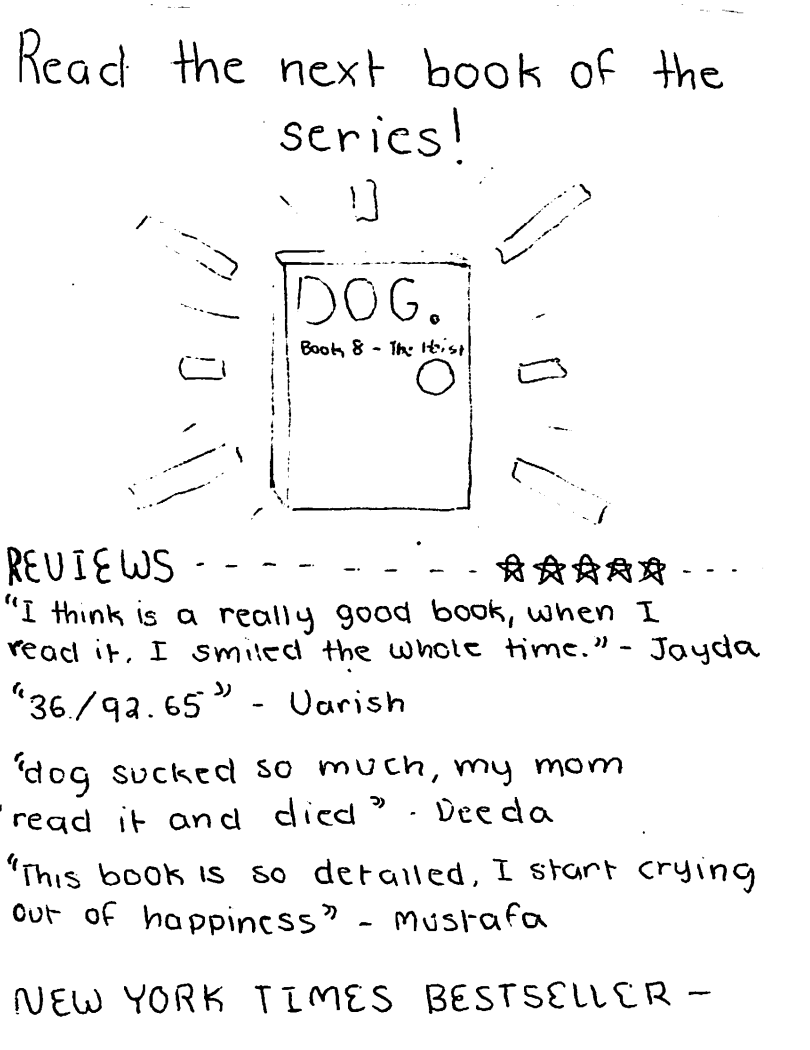 Read the next book of the
series!
DOG.
Book 8 - The Heist
REVIEWS - - - - - - - - ☆☆☆☆☆ - - -
"I think is a really good book, when I
read it, I smiled the whole time." - Jayda
"36./92.65" - Varish
"dog sucked so much, my mom
read it and died" - Deeda
"This book is so detailed, I start crying
out of happiness" - Mustafa
NEW YORK TIMES BESTSELLER -